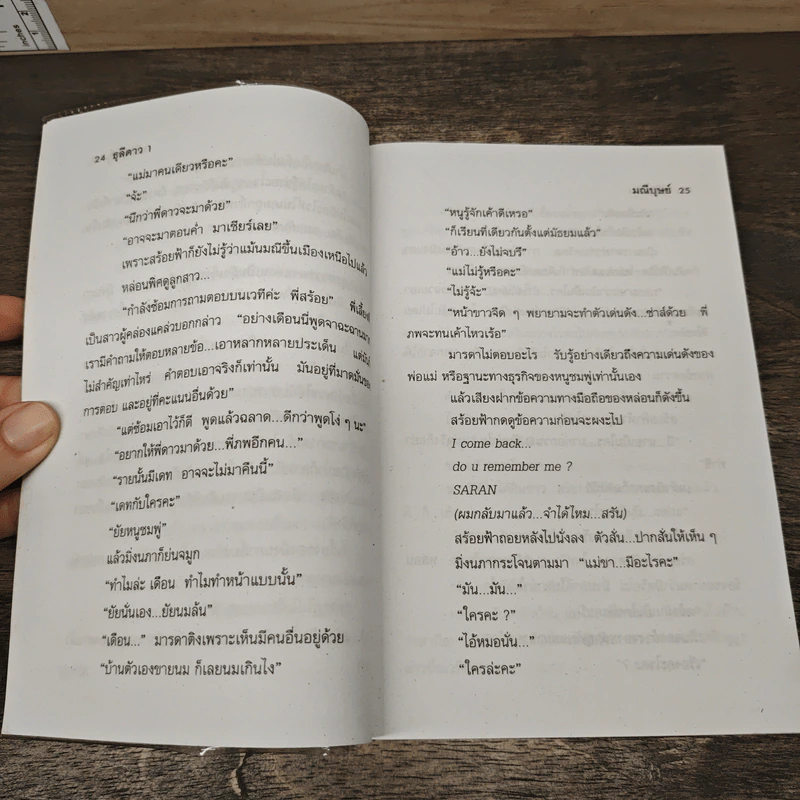 inches
24 ธุลีดาว 1
“แม่มาคนเดียวหรือคะ”
“จ้ะ”
“นึกว่าพี่ดาวจะมาด้วย”
“อาจจะมาตอนค่ำ มาเชียร์เลย”
เพราะสร้อยฟ้าก็ยังไม่รู้ว่าแม้นมณีขึ้นเมืองเหนือไปแล้ว
หล่อนพิศดูลูกสาว...
“กำลังซ้อมการถามตอบบนเวทีค่ะ พี่สร้อย” พี่เลี้ยงที่
เป็นสาวผู้คล่องแคล่วบอกกล่าว “อย่างเดือนนี่พูดจาฉะฉาน
เรามีคำถามให้ตอบหลายข้อ...เอาหลากหลายประเด็น แต่มัน
ไม่สำคัญเท่าไหร่ คำตอบเอาจริงก็เท่านั้น มันอยู่ที่มาดมั่นของ
การตอบ และอยู่ที่คะแนนอื่นด้วย”
“แต่ซ้อมเอาไว้ก็ดี พูดแล้วฉลาด...ดีกว่าพูดโง่ ๆ นะ”
“อยากให้พี่ดาวมาด้วย...พี่ภพอีกคน...”
“รายนั้นมีเดท อาจจะไม่มาคืนนี้”
“เดทกับใครคะ”
“ยัยหนูชมพู่”
แล้วมิ่งนภาก็ย่นจมูก
“ทำไมล่ะ เดือน ทำไมทำหน้าแบบนั้น”
“ยัยนั่นเอง...ยัยนมล้น”
“เดือน...” มารดาติงเพราะเห็นมีคนอื่นอยู่ด้วย
“บ้านตัวเองขายนม ก็เลยนมเกินไง”
มณีบุษย์ 25
“หนูรู้จักเค้าดีเหรอ”
“ก็เรียนที่เดียวกันตั้งแต่มัธยมแล้ว”
“อ้าว...ยังไม่จบรึ”
“แม่ไม่รู้หรือคะ”
“ไม่รู้จ้ะ”
“หน้าขาวจืด ๆ พยายามจะทำตัวเด่นดัง...ซ่าส์ด้วย พี่
ภพจะทนเค้าไหวเร้อ”
มารดาไม่ตอบอะไร รับรู้อย่างเดียวถึงความเด่นดังของ
พ่อแม่ หรือฐานะทางธุรกิจของหนูชมพู่เท่านั้นเอง
แล้วเสียงฝากข้อความทางมือถือของหล่อนก็ดังขึ้น
สร้อยฟ้ากดดูข้อความก่อนจะผงะไป
I come back...
do u remember me ?
SARAN
(ผมกลับมาแล้ว...จำได้ไหม...สรัน)
สร้อยฟ้าถอยหลังไปนั่งลง ตัวสั่น...ปากสั่นให้เห็น ๆ
มิ่งนภากระโจนตามมา “แม่ขา...มีอะไรคะ”
“มัน...มัน...”
“ใครคะ ?”
“ไอ้หมอนั่น...”
“ใครล่ะคะ”